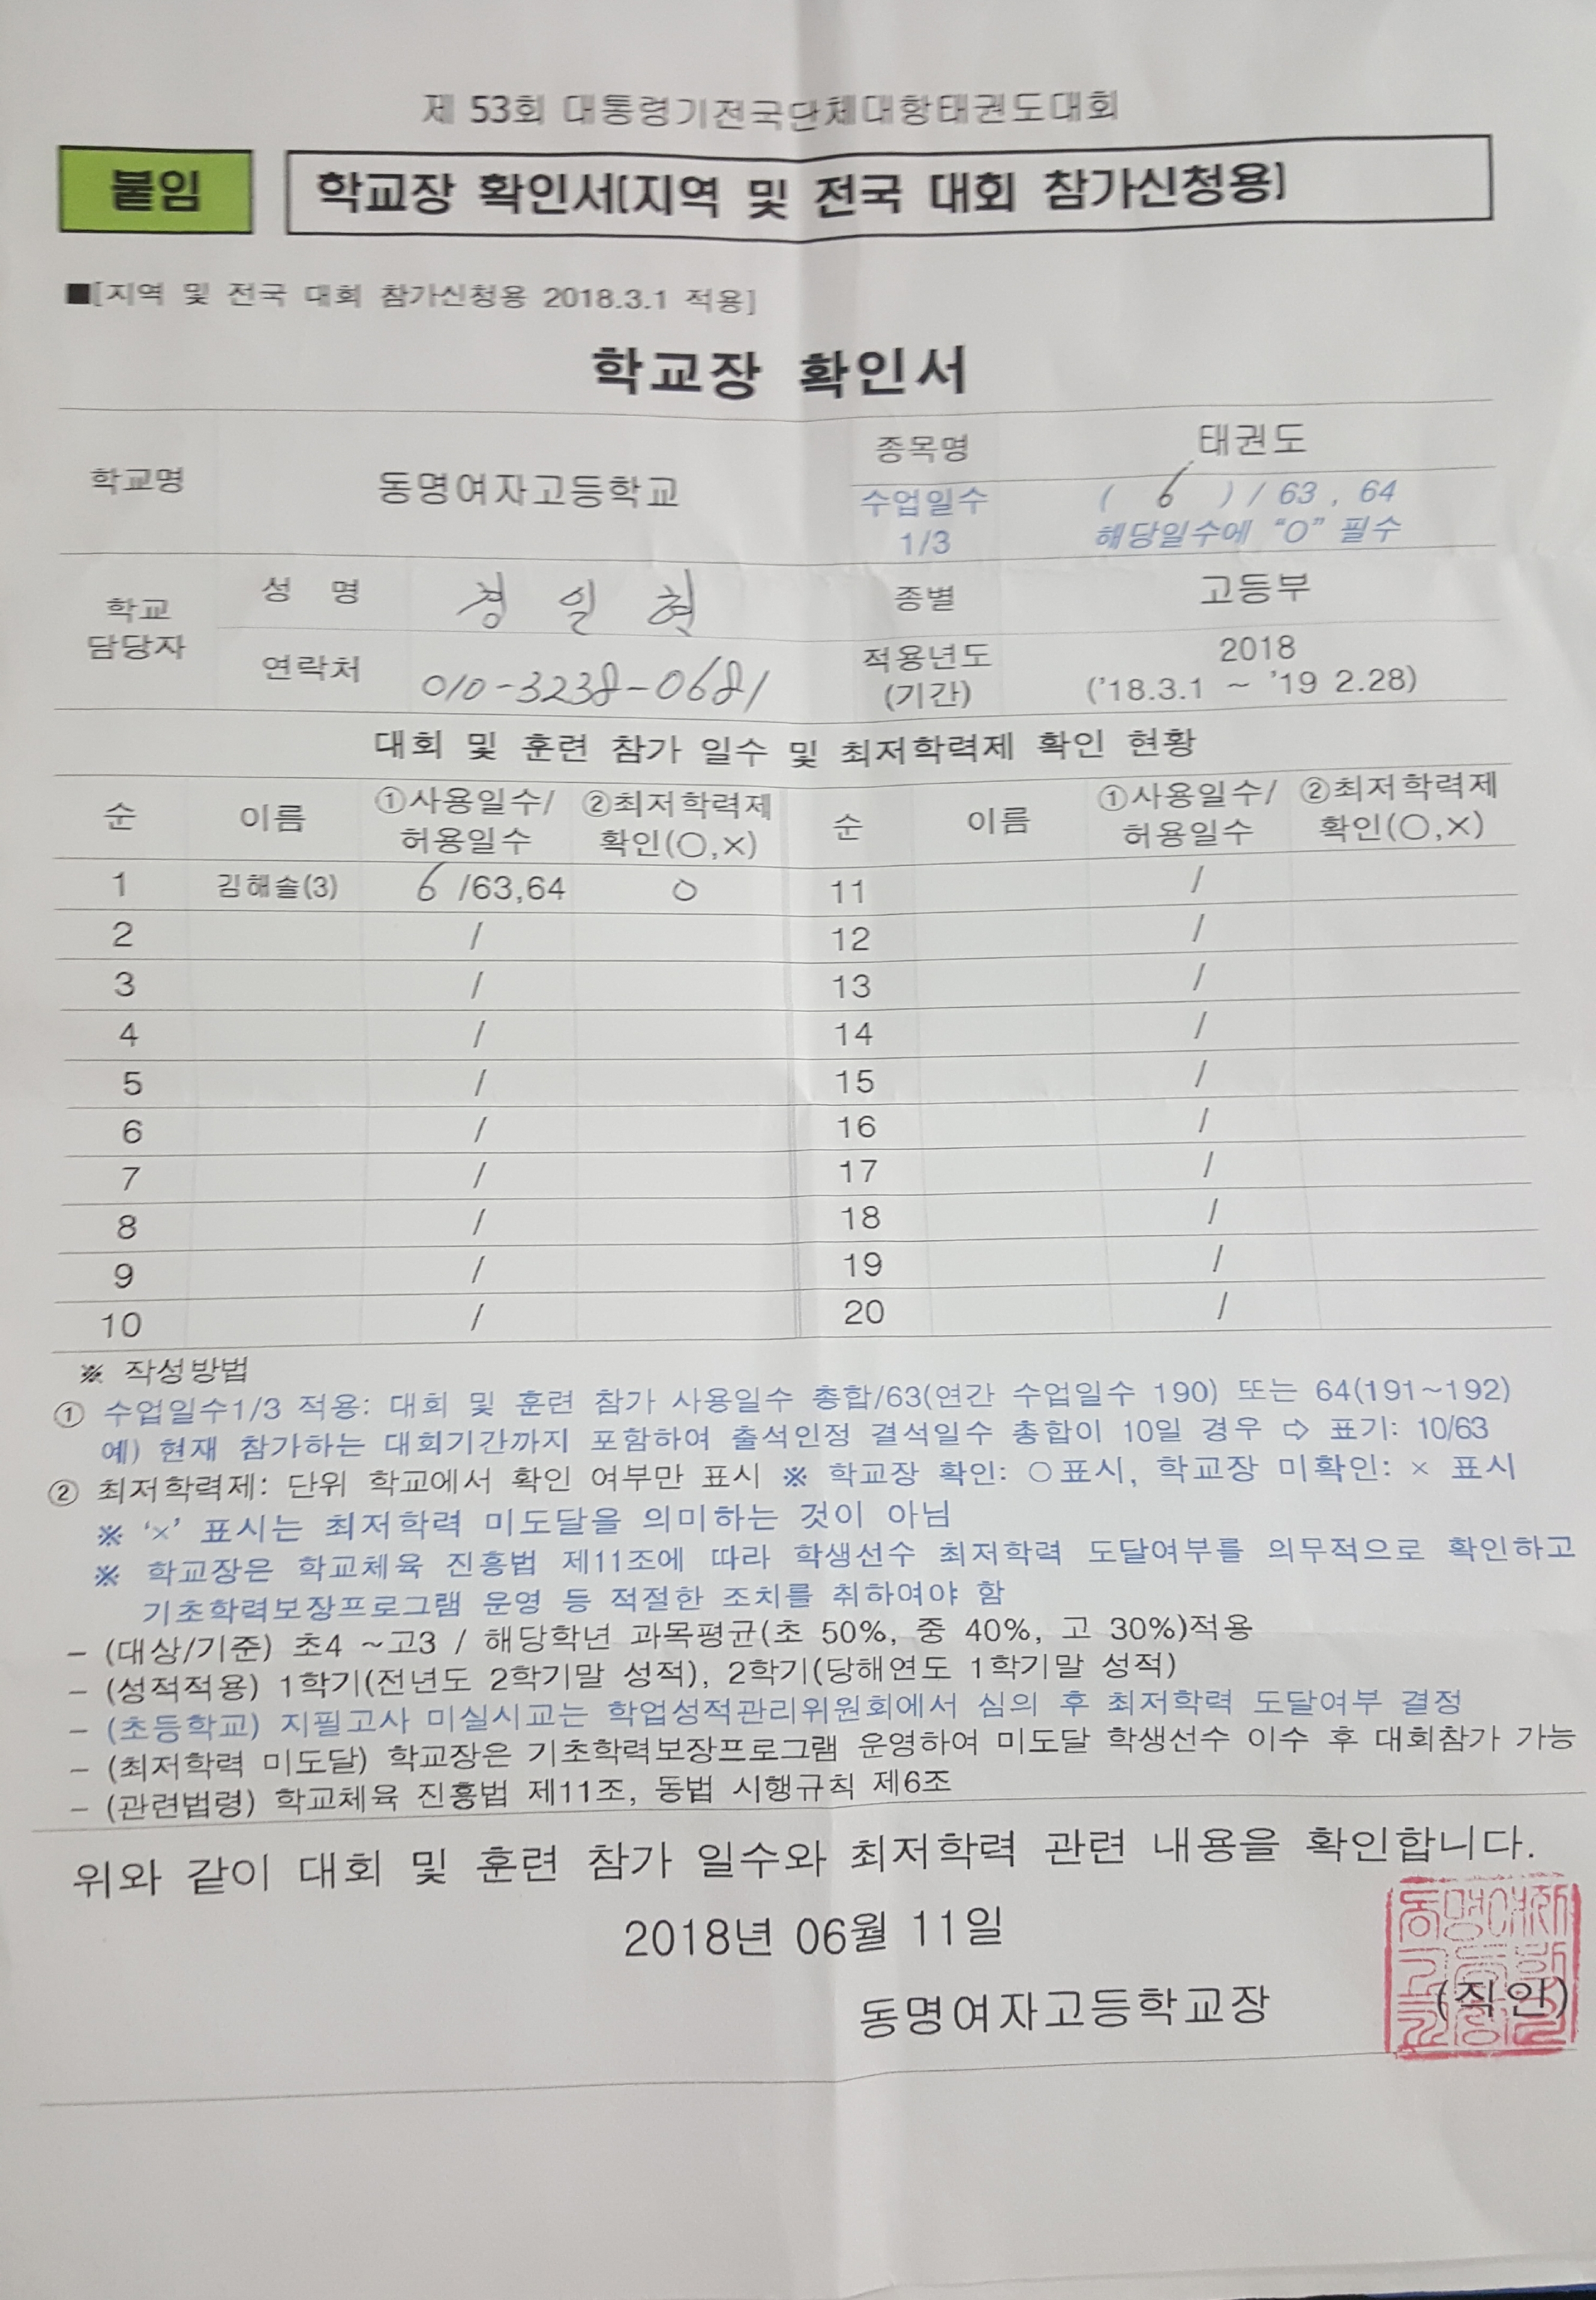 제 53회 대통령기전국단체대항태권도대회
붙임
학교장 확인서(지역 및 전국 대회 참가신청용)
■[지역 및 전국 대회 참가신청용 2018.3.1 적용]
학교장 확인서
학교명 동명여자고등학교 종목명 태권도
수업일수 1/3 ( 6 ) / 63 , 64
해당일수에 “O” 필수
학교 담당자 성 명 경 일 혁 종별 고등부
연락처 010-3238-0681 적용년도 (기간) 2018
('18.3.1 ~ '19 2.28)
대회 및 훈련 참가 일수 및 최저학력제 확인 현황
순 이름 ①사용일수/허용일수 ②최저학력제 확인(○,×) 순 이름 ①사용일수/허용일수 ②최저학력제 확인(○,×)
1 김해솔(3) 6 /63,64 ○ 11 /
2 / 12 /
3 / 13 /
4 / 14 /
5 / 15 /
6 / 16 /
7 / 17 /
8 / 18 /
9 / 19 /
10 / 20 /
※ 작성방법
① 수업일수1/3 적용: 대회 및 훈련 참가 사용일수 총합/63(연간 수업일수 190) 또는 64(191~192)
예) 현재 참가하는 대회기간까지 포함하여 출석인정 결석일수 총합이 10일 경우 ⇨ 표기: 10/63
② 최저학력제: 단위 학교에서 확인 여부만 표시 ※ 학교장 확인: ○표시, 학교장 미확인: × 표시
※ ‘×’ 표시는 최저학력 미도달을 의미하는 것이 아님
※ 학교장은 학교체육 진흥법 제11조에 따라 학생선수 최저학력 도달여부를 의무적으로 확인하고
기초학력보장프로그램 운영 등 적절한 조치를 취하여야 함
- (대상/기준) 초4 ~고3 / 해당학년 과목평균(초 50%, 중 40%, 고 30%)적용
- (성적적용) 1학기(전년도 2학기말 성적), 2학기(당해연도 1학기말 성적)
- (초등학교) 지필고사 미실시교는 학업성적관리위원회에서 심의 후 최저학력 도달여부 결정
- (최저학력 미도달) 학교장은 기초학력보장프로그램 운영하여 미도달 학생선수 이수 후 대회참가 가능
- (관련법령) 학교체육 진흥법 제11조, 동법 시행규칙 제6조
위와 같이 대회 및 훈련 참가 일수와 최저학력 관련 내용을 확인합니다.
2018년 06월 11일
동명여자고등학교장 (직인)